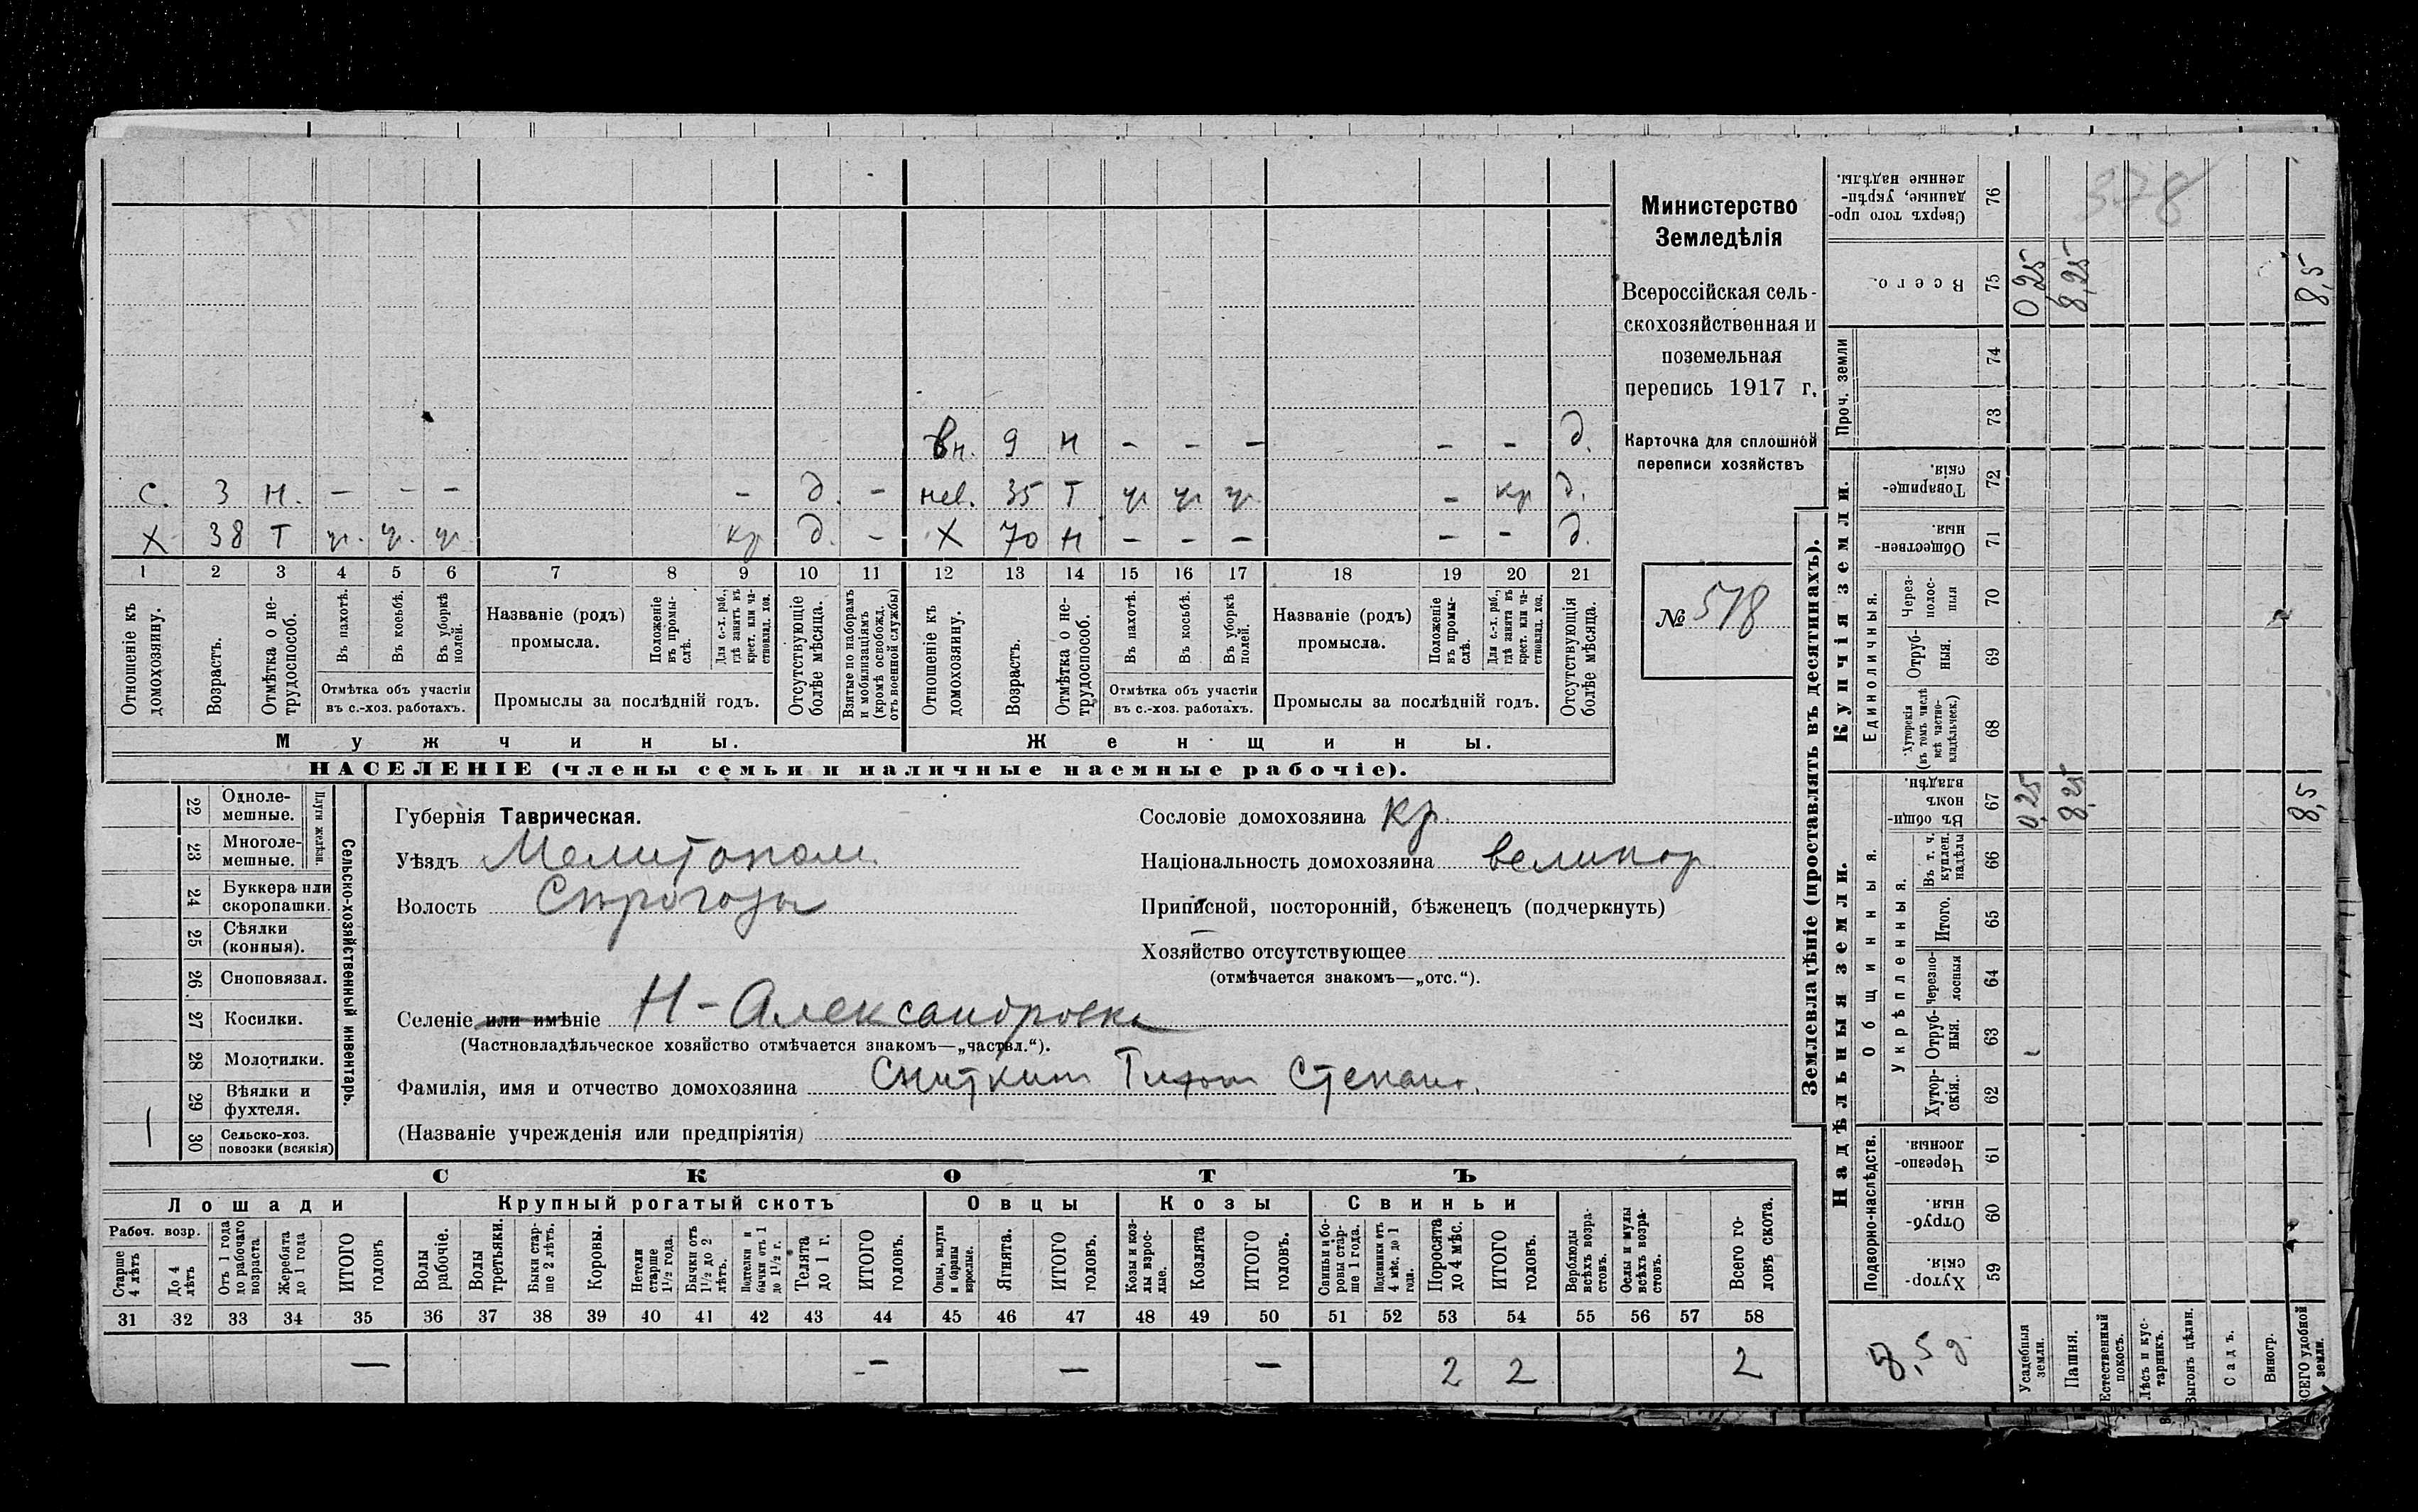 378
Министерство
Земледѣлія
Всероссійская сель-
скохозяйственная и
поземельная
перепись 1917 г.
Карточка для сплошной
переписи хозяйствъ
№ 518
вн. 9 н - - - - - д.
с. 3 н. - - - - д. - нев. 35 т ч ч ч - кр д.
х 38 т ч. ч. ч кр д. - х 70 н - - - - - д.
1 2 3 4 5 6 7 8 9 10 11 12 13 14 15 16 17 18 19 20 21
Отношеніе къ домохозяину.
Возрастъ.
Отмѣтка о не-трудоспособ.
Въ пахотѣ.
Въ косьбѣ.
Въ уборкѣ полей.
Отмѣтка объ участіи
въ с.-хоз. работахъ.
Названіе (родъ)
промысла.
Положеніе въ промы-слѣ.
Для с.-х. раб., гдѣ занятъ въ крест. или ча-стновлад. хоз.
Промыслы за послѣдній годъ.
Отсутствующіе болѣе мѣсяца.
Взятые по наборамъ и мобилизаціямъ (кромѣ освобожд. отъ военной службы)
Отношеніе къ домохозяину.
Возрастъ.
Отмѣтка о не-трудоспособ.
Въ пахотѣ.
Въ косьбѣ.
Въ уборкѣ полей.
Отмѣтка объ участіи
въ с.-хоз. работахъ.
Названіе (родъ)
промысла.
Положеніе въ промы-слѣ.
Для с.-х. раб., гдѣ занята въ крест. или ча-стновлад. хоз.
Промыслы за послѣдній годъ.
Отсутствующія болѣе мѣсяца.
Мужчины. Женщины.
НАСЕЛЕНІЕ (члены семьи и наличные наемные рабочіе).
Сельско-хозяйственный инвентарь.
Плуги желѣзн.
22 Одноле-мешные.
23 Многоле-мешные.
24 Буккера или скоропашки.
25 Сѣялки (конныя).
26 Сноповязал.
27 Косилки.
28 Молотилки.
29 Вѣялки и фухтеля.
30 Сельско-хоз. повозки (всякія) 1
Губернія Таврическая.
Уѣздъ Мелитопол
Волость Сѣрогозы
Селеніе или имѣніе Н-Александровка
(Частновладѣльческое хозяйство отмѣчается знакомъ—„частвл.“).
Фамилія, имя и отчество домохозяина Сниткин Тихон Степано.
(Названіе учрежденія или предпріятія)
Сословіе домохозяина кр.
Національность домохозяина великор
Приписной, посторонній, бѣженецъ (подчеркнуть)
Хозяйство отсутствующее
(отмѣчается знакомъ—„отс.“).
СКОТЪ
Лошади Крупный рогатый скотъ Овцы Козы Свиньи
Рабоч. возр.
Старше 4 лѣтъ
До 4 лѣтъ
Отъ 1 года до рабочаго возраста
Жеребята до 1 года
ИТОГО головъ
Волы рабочіе.
Волы третьяки.
Быки стар-ше 2 лѣтъ.
Коровы.
Нетели старше 1½ года.
Бычки отъ 1½ до 2 лѣтъ.
Подтелки и бычки отъ 1 до 1½ г.
Телята до 1 г.
ИТОГО головъ.
Овцы, валухи и бараны взрослые.
Ягнята.
ИТОГО головъ.
Козы и коз-лы взрос-лые.
Козлята
ИТОГО головъ.
Свиньи и бо-ровы стар-ше 1 года.
Подсвинки отъ 4 мѣс. до 1 года.
Поросята до 4 мѣс.
ИТОГО головъ.
Верблюды всѣхъ возра-стовъ.
Ослы и мулы всѣхъ возра-стовъ.
Всего го-ловъ скота.
31 32 33 34 35 36 37 38 39 40 41 42 43 44 45 46 47 48 49 50 51 52 53 54 55 56 57 58
— — — — 2 2 2
Землевладѣніе (проставлять въ десятинахъ).
Надѣльныя земли. Купчія земли. Проч. земли
Подворно-наслѣдств. Общинныя. Укрѣпленныя. Единоличныя.
59 Хутор-скія.
60 Отруб-ныя.
61 Черезпо-лосныя.
62 Хутор-скія.
63 Отруб-ныя.
64 Черезпо-лосныя
65 Итого.
66 Въ т. ч. куплен. надѣлы
67 Въ общин-номъ владѣн. 0,25 8,25 8,5
68 Хуторскія (въ томъ числѣ всѣ частно-владѣльческ.)
69 Отруб-ныя.
70 Через-полос-ныя
71 Обществен-ныя.
72 Товарище-скія.
73
74
75 Всего. 0,25 8,25 8,5
76 Сверхъ того про-данные, укрѣп-ленные надѣлы.
8,5 д.
Усадебныя земли.
Пашня.
Естественный покосъ.
Лѣсъ и кус-тарникъ.
Выгонъ цѣлин.
Садъ.
Виногр.
ВСЕГО удобной земли.